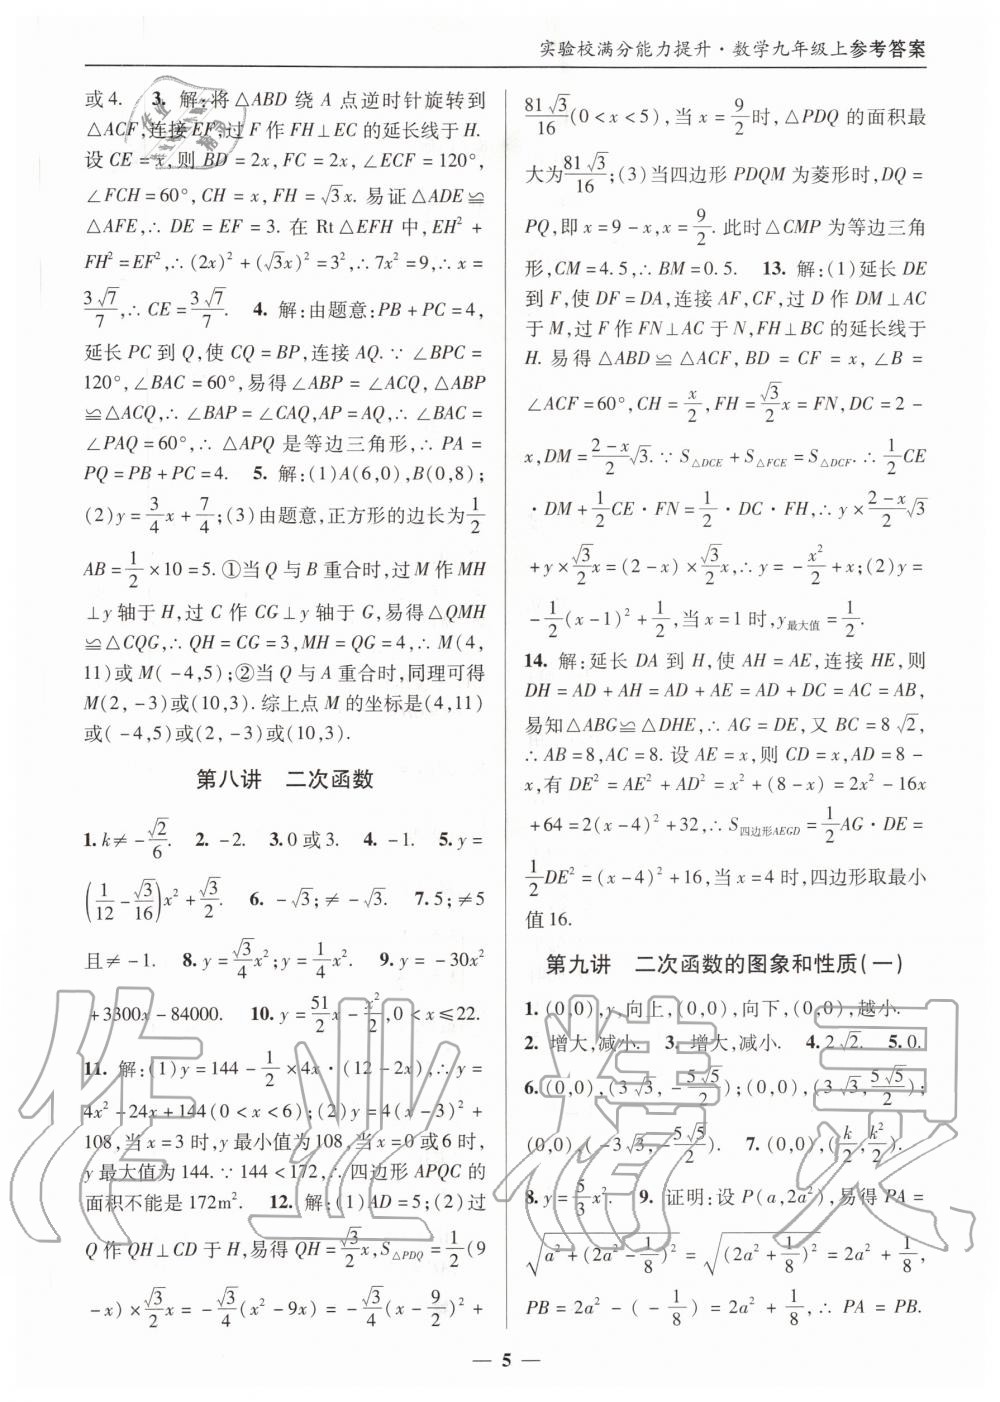 实验校满分能力提升·数学九年级上参考答案
或4. 3. 解:将△ABD 绕 A 点逆时针旋转到
△ACF,连接EF,过 F 作 FH⊥EC 的延长线于 H.
设 CE = x,则 BD = 2x, FC = 2x, ∠ECF = 120°,
∠FCH = 60°, CH = x, FH = √3x. 易证△ADE ≌
△AFE,∴ DE = EF = 3. 在 Rt△EFH 中, EH² +
FH² = EF²,∴ (2x)² + (√3x)² = 3²,∴ 7x² = 9,∴ x =
3√7/7,∴ CE = 3√7/7. 4. 解:由题意:PB + PC = 4,
延长 PC 到 Q,使 CQ = BP,连接 AQ. ∵ ∠BPC =
120°, ∠BAC = 60°,易得∠ABP = ∠ACQ, △ABP
≌△ACQ,∴ ∠BAP = ∠CAQ, AP = AQ,∴ ∠BAC =
∠PAQ = 60°,∴ △APQ 是等边三角形,∴ PA =
PQ = PB + PC = 4. 5. 解:(1)A(6,0),B(0,8);
(2)y = 3/4 x + 7/4;(3)由题意,正方形的边长为1/2
AB = 1/2 × 10 = 5. ①当 Q 与 B 重合时,过 M 作 MH
⊥y 轴于 H,过 C 作 CG⊥y 轴于 G,易得△QMH
≌△CQG,∴ QH = CG = 3, MH = QG = 4,∴ M(4,
11)或 M(-4,5);②当 Q 与 A 重合时,同理可得
M(2, -3)或(10,3). 综上点 M 的坐标是(4,11)
或(-4,5)或(2, -3)或(10,3).
第八讲 二次函数
1. k≠ -√2/6. 2. -2. 3. 0 或3. 4. -1. 5. y =
(1/12 - √3/16)x² + √3/2. 6. -√3; ≠ -√3. 7. 5; ≠5
且≠ -1. 8. y = √3/4 x²; y = 1/4 x². 9. y = -30x²
+3300x - 84000. 10. y = 51/2 x - x²/2, 0 < x ≤ 22.
11. 解:(1)y = 144 - 1/2 × 4x·(12 - 2x),∴ y =
4x² - 24x + 144(0 < x < 6);(2)y = 4(x - 3)² +
108,当 x = 3 时,y 最小值为108,当 x = 0 或6 时,
y 最大值为 144. ∵ 144 < 172,∴ 四边形 APQC 的
面积不能是172m². 12. 解:(1)AD = 5;(2)过
Q 作 QH⊥CD 于 H,易得 QH = √3/2 x, S△PDQ = 1/2(9
-x) × √3/2 x = -√3/4(x² - 9x) = -√3/4(x - 9/2)² +
81√3/16(0 < x < 5),当 x = 9/2时, △PDQ 的面积最
大为81√3/16;(3)当四边形 PDQM 为菱形时, DQ =
PQ,即 x = 9 - x, x = 9/2. 此时△CMP 为等边三角
形, CM = 4.5,∴ BM = 0.5. 13. 解:(1)延长 DE
到 F,使 DF = DA,连接 AF, CF,过 D 作 DM⊥AC
于 M,过 F 作 FN⊥AC 于 N, FH⊥BC 的延长线于
H. 易得△ABD≌△ACF, BD = CF = x, ∠B =
∠ACF = 60°, CH = x/2, FH = √3/2 x = FN, DC = 2 -
x, DM = 2-x/2 √3. ∵ S△DCE + S△FCE = S△DCF. ∴ 1/2 CE
·DM + 1/2 CE·FN = 1/2·DC·FH,∴ y × 2-x/2 √3
+y × √3/2 x = (2 - x) × √3/2 x,∴ y = -x²/2 + x;(2)y =
-1/2(x - 1)² + 1/2,当 x = 1 时, y最大值 = 1/2.
14. 解:延长 DA 到 H,使 AH = AE,连接 HE,则
DH = AD + AH = AD + AE = AD + DC = AC = AB,
易知△ABG≌△DHE,∴ AG = DE,又 BC = 8√2,
∴ AB = 8, AC = 8. 设 AE = x,则 CD = x, AD = 8 -
x,有 DE² = AE² + AD² = x² + (8 - x) = 2x² - 16x
+64 = 2(x - 4)² + 32,∴ S四边形AEGD = 1/2 AG·DE =
1/2 DE² = (x - 4)² + 16,当 x = 4 时,四边形取最小
值16.
第九讲 二次函数的图象和性质(一)
1. (0,0), y,向上,(0,0),向下,(0,0),越小.
2. 增大,减小. 3. 增大,减小. 4. 2√2. 5. 0.
6. (0,0),(3√3, -5√5/2);(0,0),(3√3, 5√5/2);
(0,0),(-3√3, -5√5/2). 7. (0,0),(k/2, k²/2).
8. y = 5/3 x². 9. 证明:设 P(a,2a²),易得 PA =
√(a² + (2a² - 1/8)²) = √((2a² + 1/8)²) = 2a² + 1/8,
PB = 2a² - (-1/8) = 2a² + 1/8,∴ PA = PB.
— 5 —
作业精灵